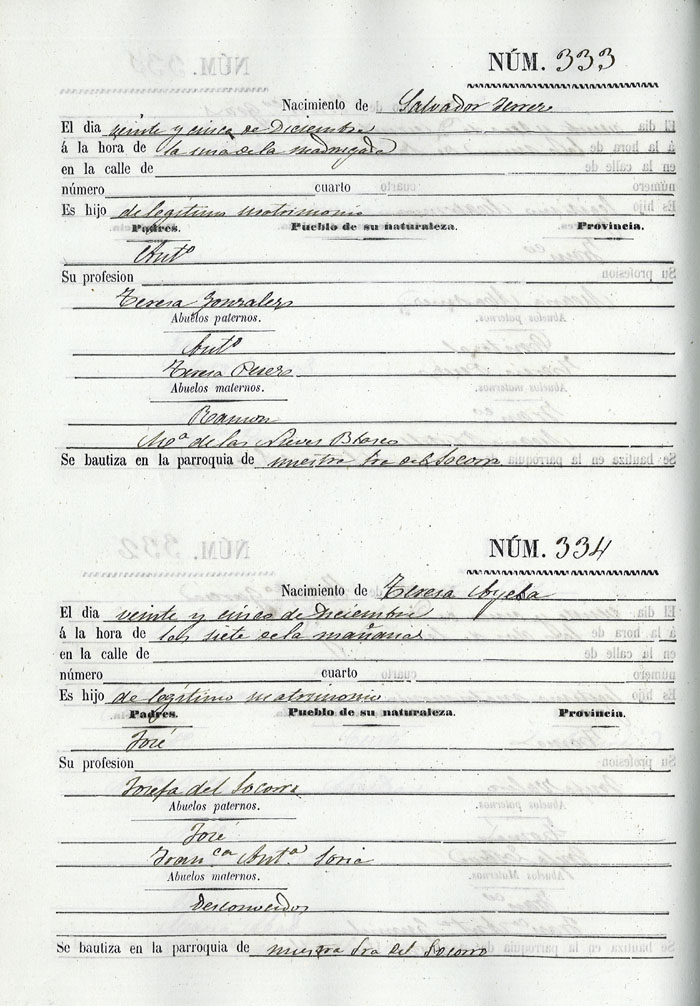 NÚM. 333
Nacimiento de Salvador Ferrer
El dia veinte y cinco de Diciembre
á la hora de la una de la madrugada
en la calle de
número cuarto
Es hijo de legitimo matrimonio
Padres. Pueblo de su naturaleza. Provincia.
Antº
Su profesion
Teresa Gonzalez
Abuelos paternos.
Antº
Teresa Perez
Abuelos maternos.
Ramon
Mª de las Nieves Blasco
Se bautiza en la parroquia de nuestra Sra del Socorro
NÚM. 334
Nacimiento de Teresa Ayela
El dia veinte y cinco de Diciembre
á la hora de las siete de la mañana
en la calle de
número cuarto
Es hijo de legítimo matrimonio
Padres. Pueblo de su naturaleza. Provincia.
José
Su profesion
Josefa del Socorro
Abuelos paternos.
José
Franca Antª Soria
Abuelos maternos.
Desconocidos
Se bautiza en la parroquia de nuestra Sra del Socorro